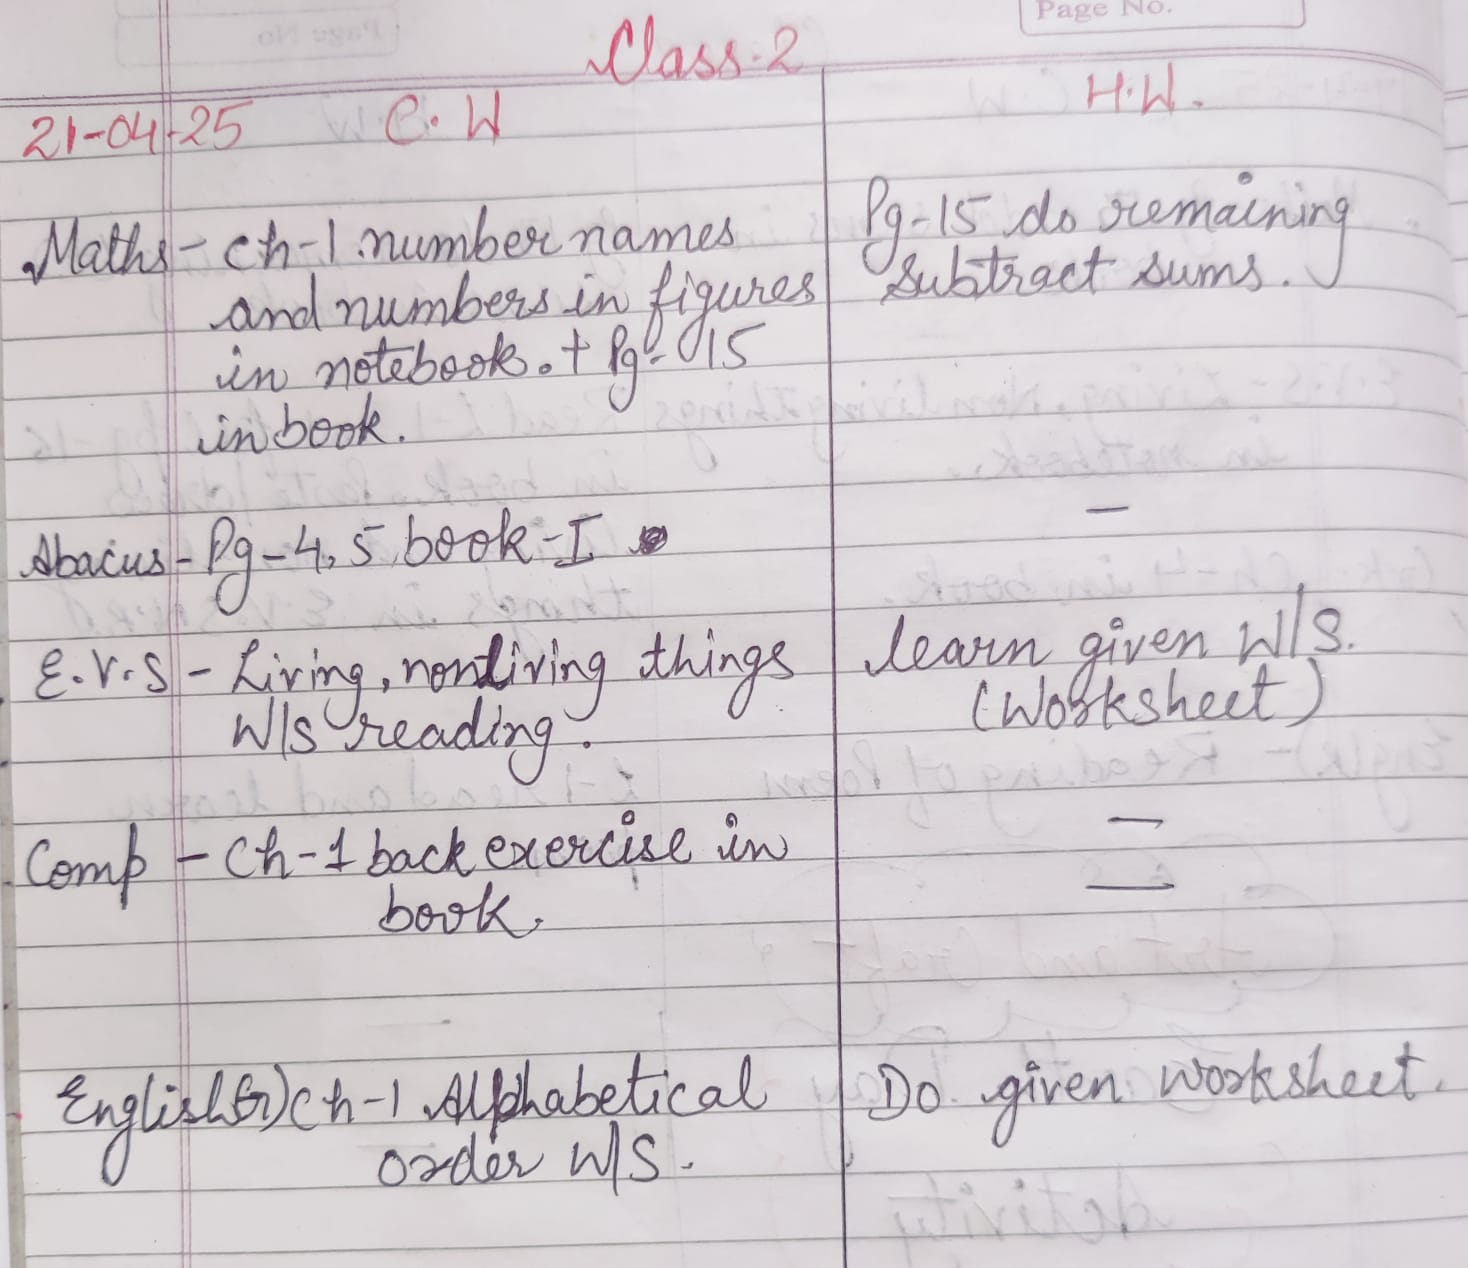 Page No.
Class-2
21-04-25 C.W
H.W.
Maths - ch-1 number names
and numbers in figures
in notebook. + Pg-15
in book.
Pg-15 do remaining
subtract sums.
Abacus - Pg-4, 5 book-I
—
E.V.S - Living, nonliving things
W/S reading.
learn given W/S.
(Worksheet)
Comp - Ch-1 back exercise in
book.
—
—
English(Gr) Ch-1 Alphabetical
order W/S.
Do given worksheet.